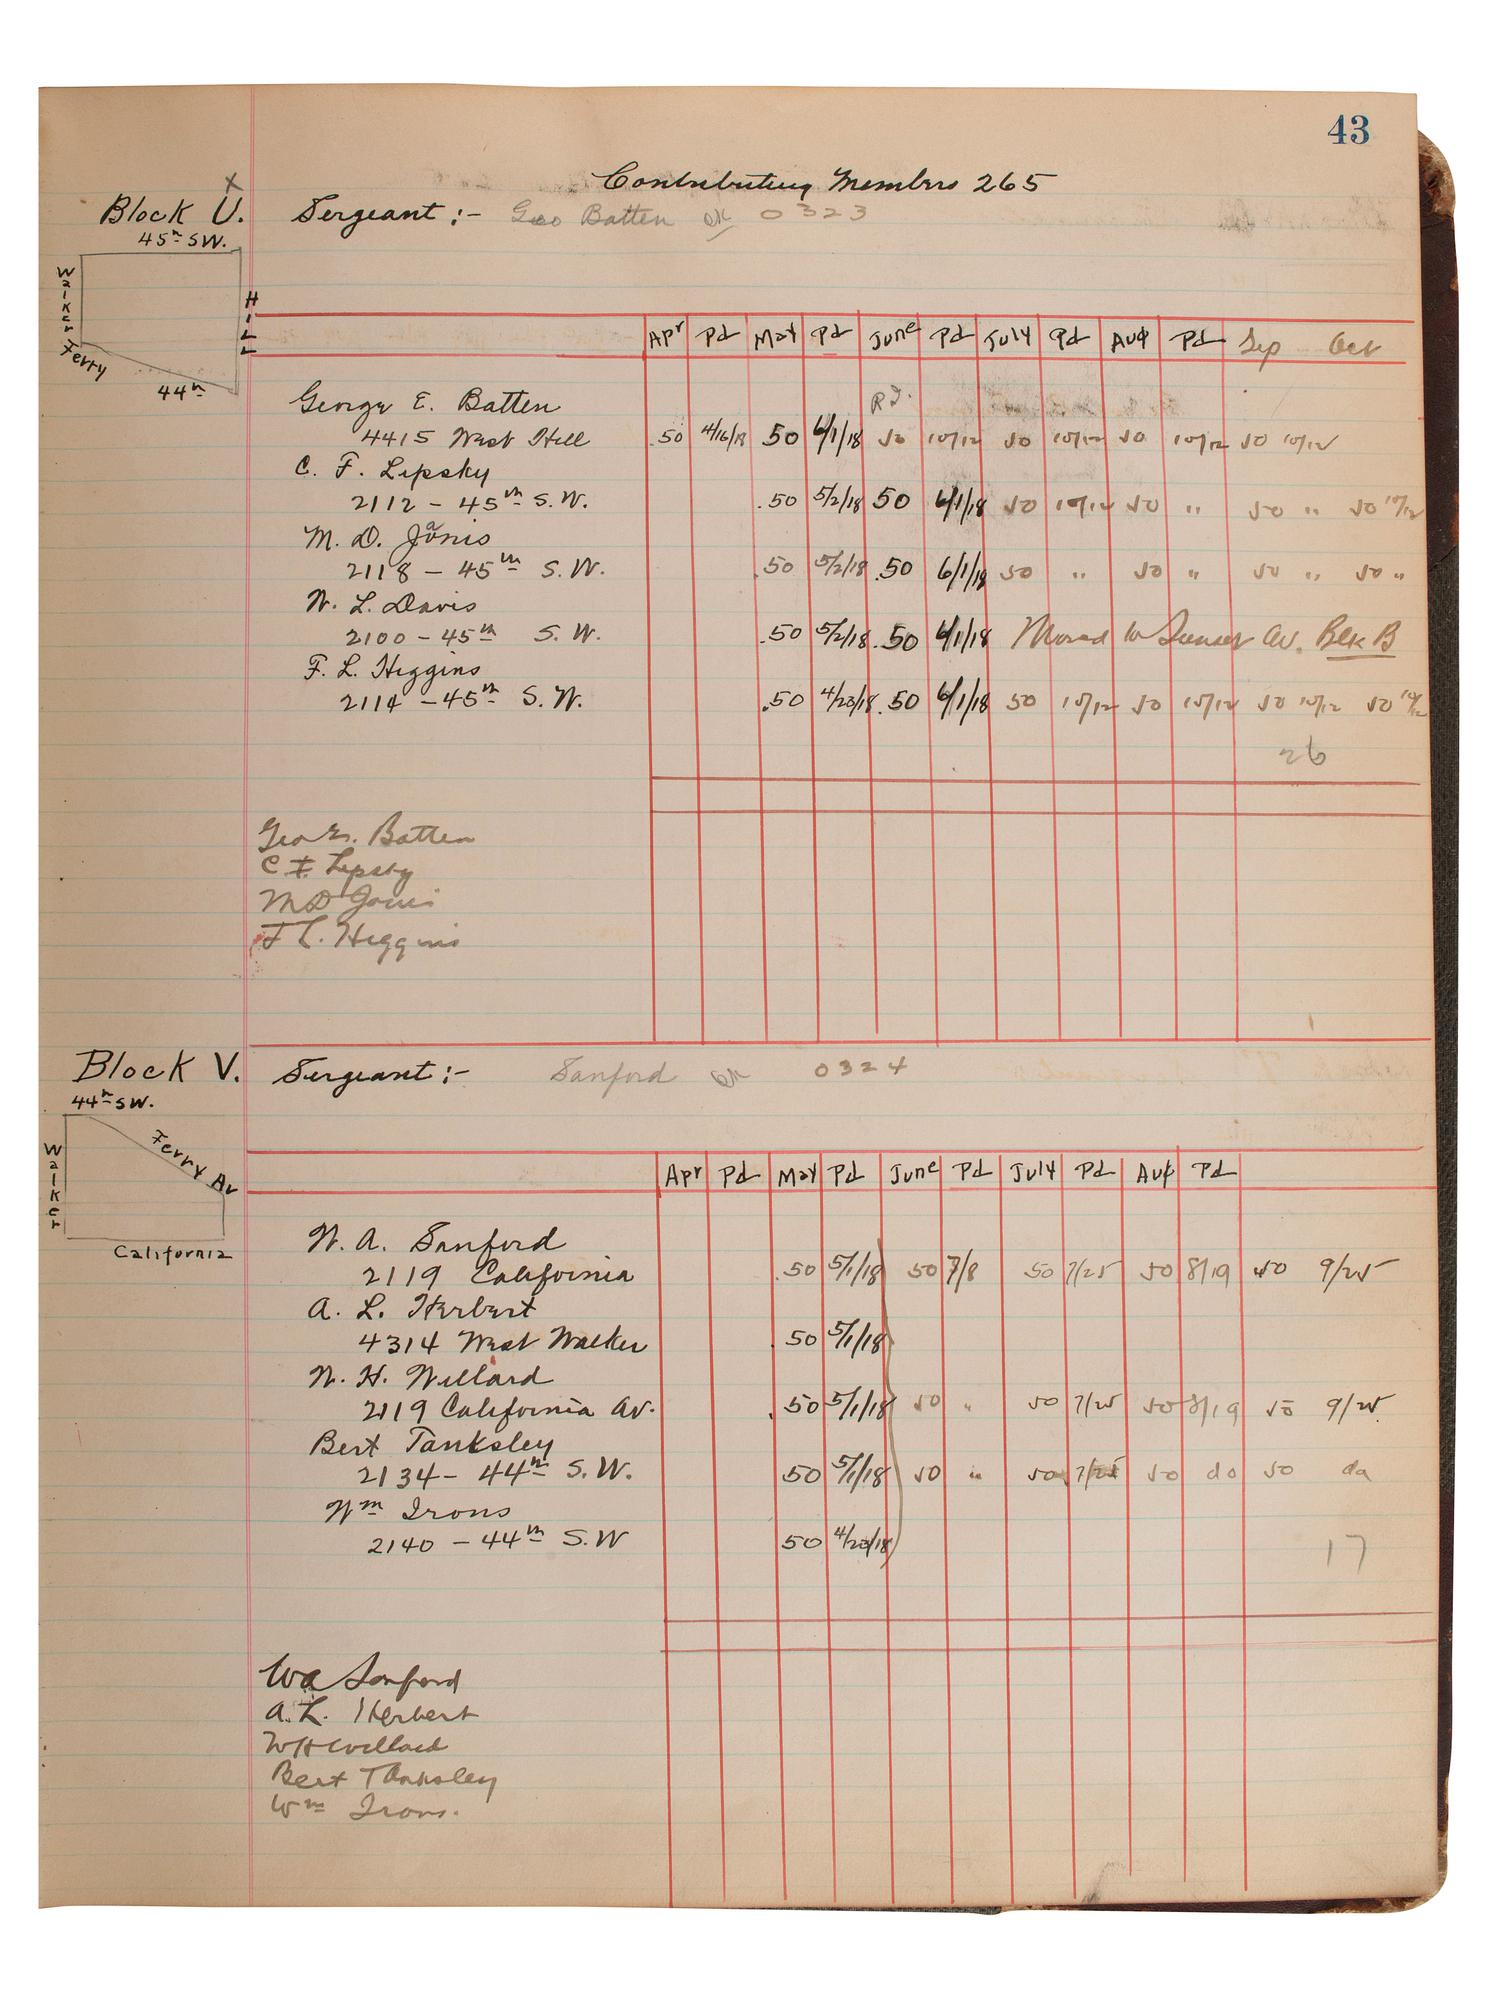 43
Contributing Members 265
x
Block U. Sergeant :- Geo Batten OK 0323
45th SW.
Walker
Hill
Ferry
44th
Apr Pd May Pd June Pd July Pd Aug Pd Sep Oct
George E. Batten Pd.
4415 West Hill 50 4/16/18 50 6/1/18 50 10/12 50 10/12 50 10/12 50 10/12
C. F. Lipsky
2112 - 45th S.W. .50 5/2/18 50 6/1/18 50 10/12 50 " 50 " 50 10/12
M. D. Janis
2118 - 45th S.W. .50 5/2/18 .50 6/1/18 50 " 50 " 50 " 50 "
N. L. Davis
2100 - 45th S.W. .50 5/2/18 .50 6/1/18 Moved to Sunset Av. Blk B
F. L. Higgins
2114 - 45th S.W. .50 4/23/18 .50 6/1/18 50 10/12 50 10/12 50 10/12 50 10/12
26
Geo E. Batten
C F Lipsky
M D Janis
F L. Higgins
Block V. Sergeant :- Sanford OK 0324
44th SW.
Walker
Ferry Av
California
Apr Pd May Pd June Pd July Pd Aug Pd
W. A. Sanford
2119 California .50 5/1/18 50 7/8 50 7/25 50 8/19 50 9/25
A. L. Herbert
4314 West Walker .50 5/1/18
W. H. Willard
2119 California Av. .50 5/1/18 50 " 50 7/25 50 8/19 50 9/25
Bert Tanksley
2134 - 44th S.W. 50 5/1/18 50 " 50 7/25 50 do 50 do
Wm Irons
2140 - 44th S.W 50 4/23/18
17
WA Sanford
A. L. Herbert
W H Willard
Bert Tanksley
Wm Irons.